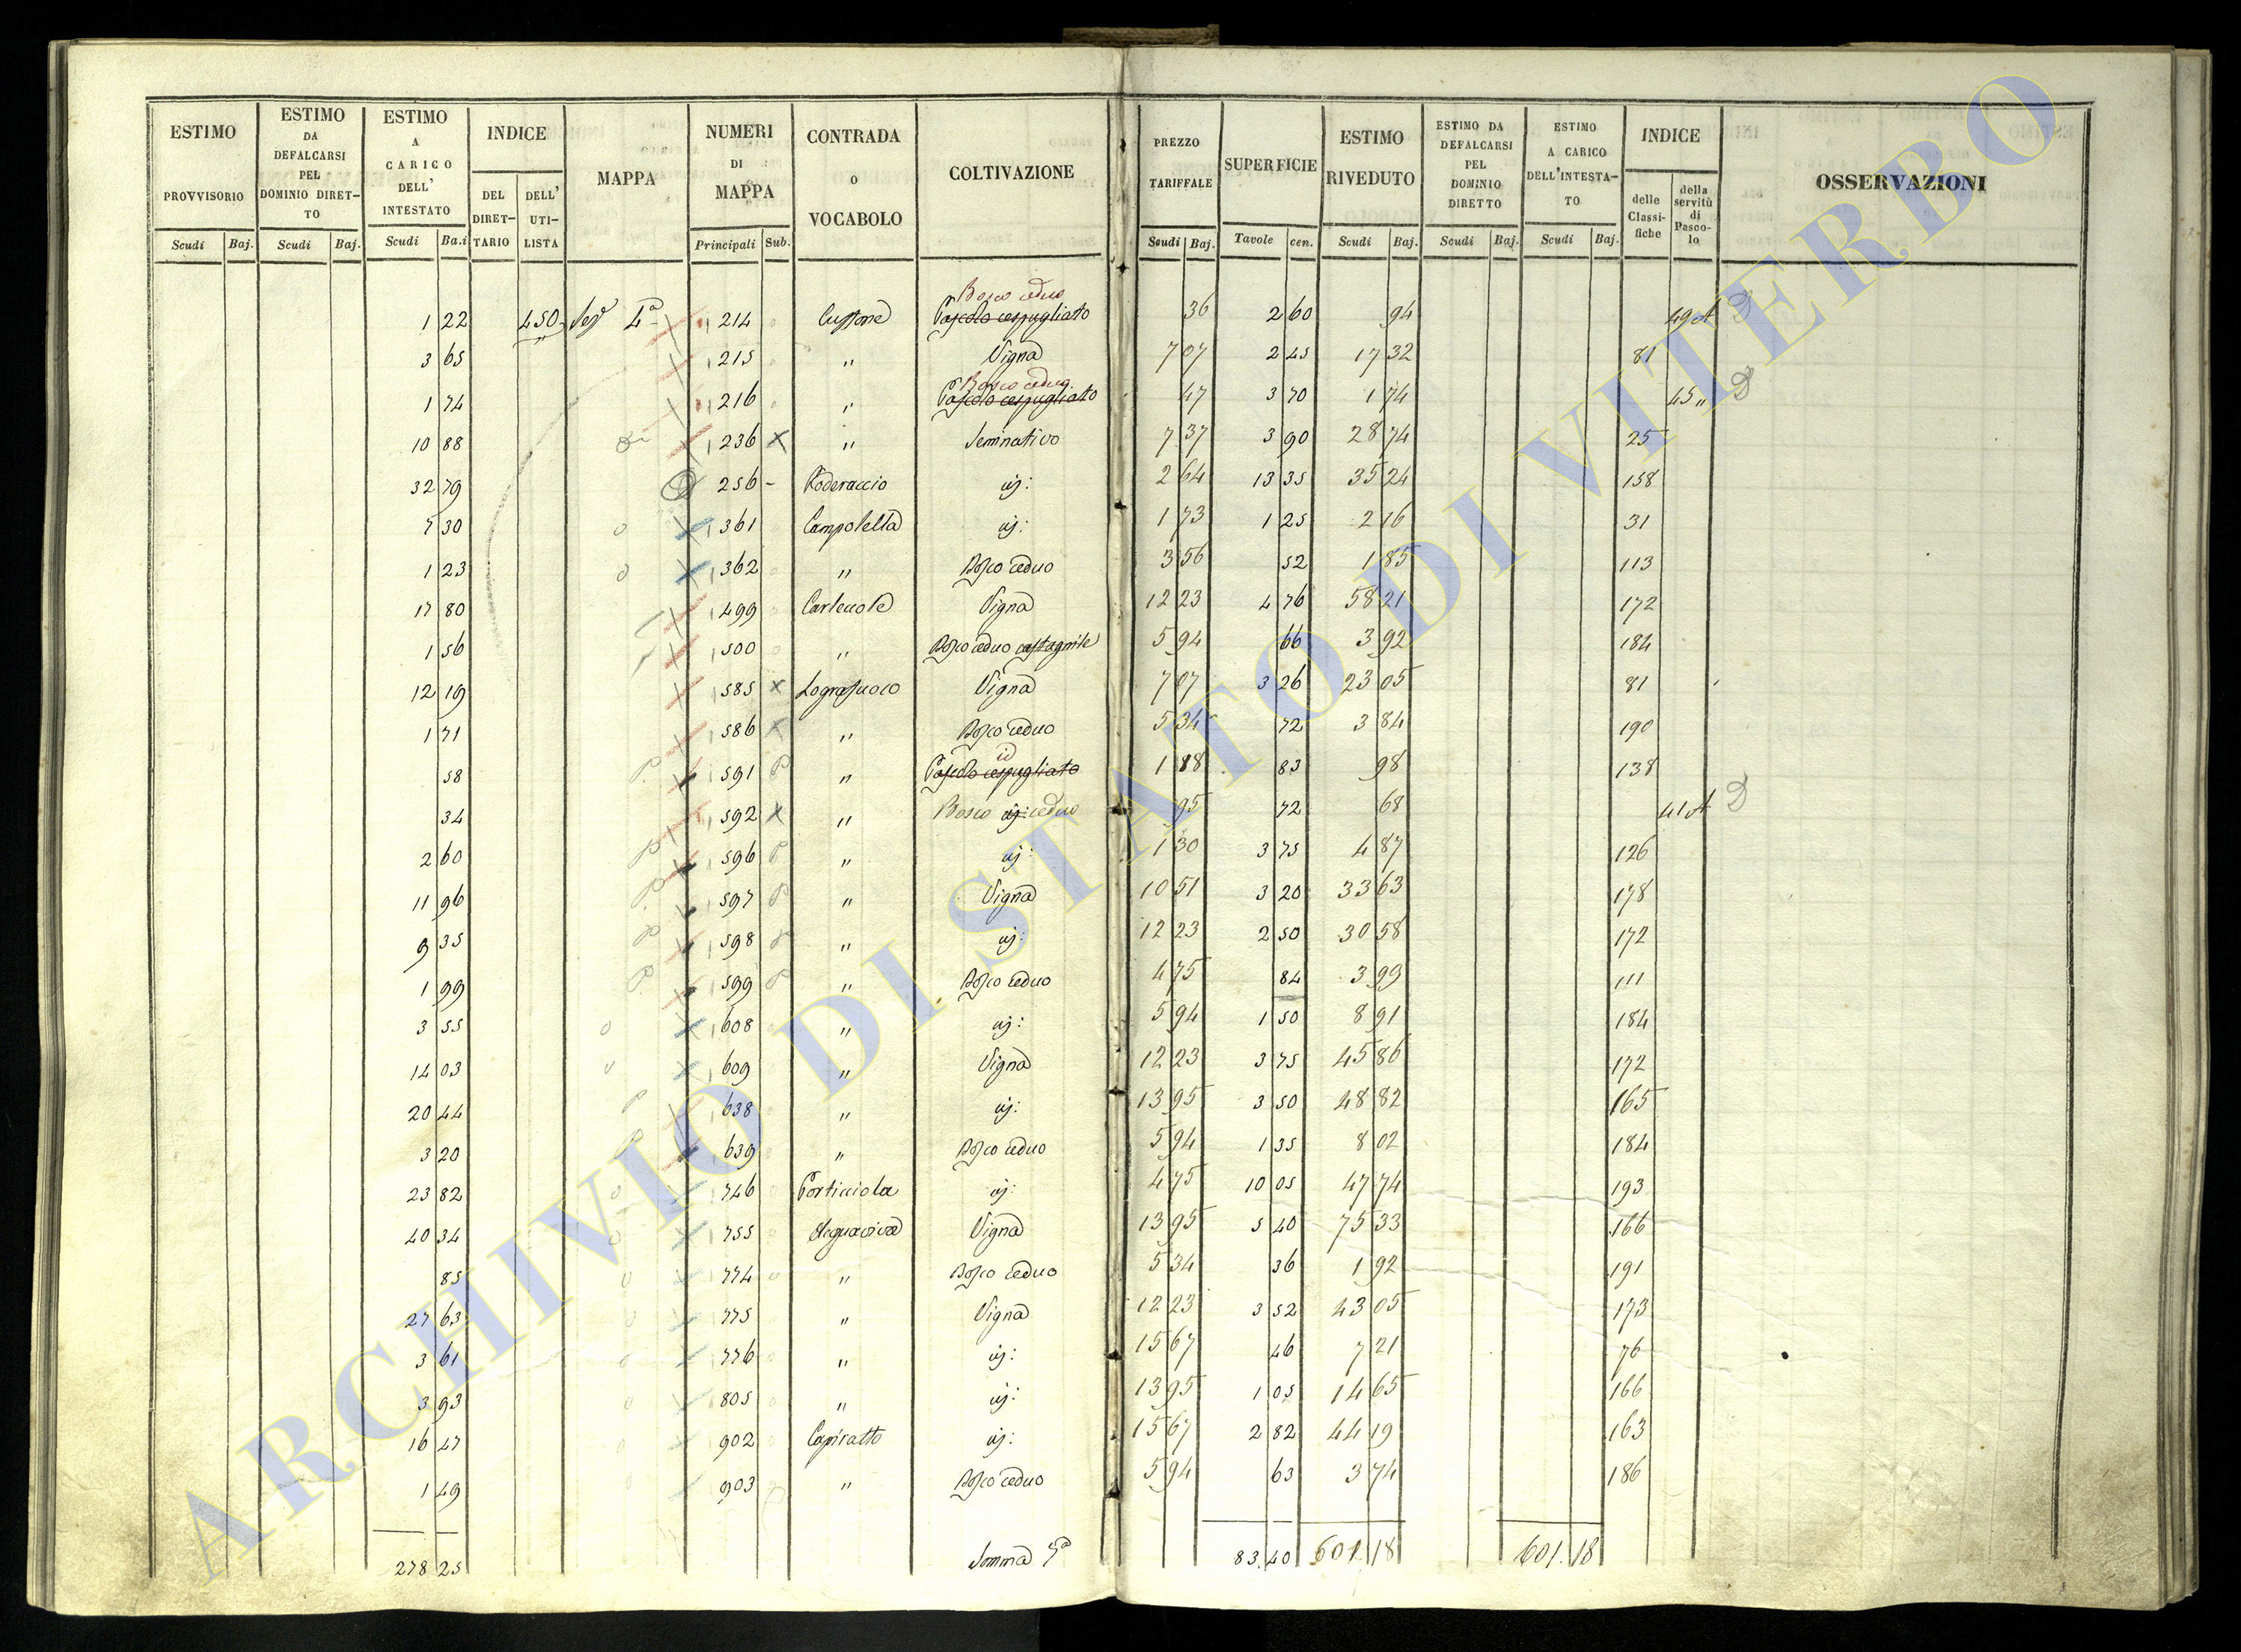 ESTIMO PROVVISORIO
ESTIMO DA DEFALCARSI PEL DOMINIO DIRET-TO
ESTIMO A CARICO DELL' INTESTATO
INDICE
DEL DIRET-TARIO
DELL' UTI-LISTA
MAPPA
NUMERI DI MAPPA
CONTRADA O VOCABOLO
COLTIVAZIONE
PREZZO TARIFFALE
SUPERFICIE
ESTIMO RIVEDUTO
ESTIMO DA DEFALCARSI PEL DOMINIO DIRETTO
ESTIMO A CARICO DELL'INTESTA-TO
INDICE
delle Classi-fiche
della servitù di Pasco-lo
OSSERVAZIONI
Scudi Baj. Scudi Baj. Scudi Ba.i Principali Sub. Scudi Baj. Tavole cen. Scudi Baj. Scudi Baj. Scudi Baj.
Bosco ceduo
1 22 450 4ª 214 Pascolo cespugliato 36 2 60 94 49 A D
3 65 215 " Vigna 7 07 2 45 17 32 81
Bosco ceduo
1 74 216 " Pascolo cespugliato 47 3 70 1 74 45 " D
10 88 236 X " Seminativo 7 37 3 90 28 74 25
32 79 256 - Poderaccio id: 2 64 13 35 35 24 158
7 30 361 Campoletta id: 1 73 1 25 2 16 31
1 23 362 " Bosco ceduo 3 56 52 1 85 113
17 80 499 Vigna 12 23 4 76 58 21 172
1 56 500 " Bosco ceduo castagnile 5 94 66 3 92 184
12 19 585 X Lograsuoco Vigna 7 07 3 26 23 05 81
1 71 586 X " Bosco ceduo 5 34 72 3 84 190
id
58 P 591 P " Pascolo cespugliato 1 18 83 98 138
34 592 X " Bosco id: ceduo 95 72 68 41 A D
2 60 P 596 P " id: 1 30 3 75 4 87 126
11 96 P 597 P " Vigna 10 51 3 20 33 63 178
9 35 P 598 P " id: 12 23 2 50 30 58 172
1 99 P 599 P " Bosco ceduo 4 75 84 3 99 111
3 55 608 " id: 5 94 1 50 8 91 184
14 03 609 " Vigna 12 23 3 75 45 86 172
20 44 P 638 " id: 13 95 3 50 48 82 165
3 20 P 639 " Bosco ceduo 5 94 1 35 8 02 184
23 82 746 Porticciola id: 4 75 10 05 47 74 193
40 34 755 Acquaviva Vigna 13 95 5 40 75 33 166
85 774 " Bosco ceduo 5 34 36 1 92 191
27 63 775 " Vigna 12 23 3 52 43 05 173
3 61 776 " id: 15 67 46 7 21 76
3 93 805 " id: 13 95 1 05 14 65 166
16 47 902 Capiratto id: 15 67 2 82 44 19 163
1 49 903 " Bosco ceduo 5 94 63 3 74 186
278 25 Somma 83.40 601 18 601.18
ARCHIVIO DI STATO DI VITERBO